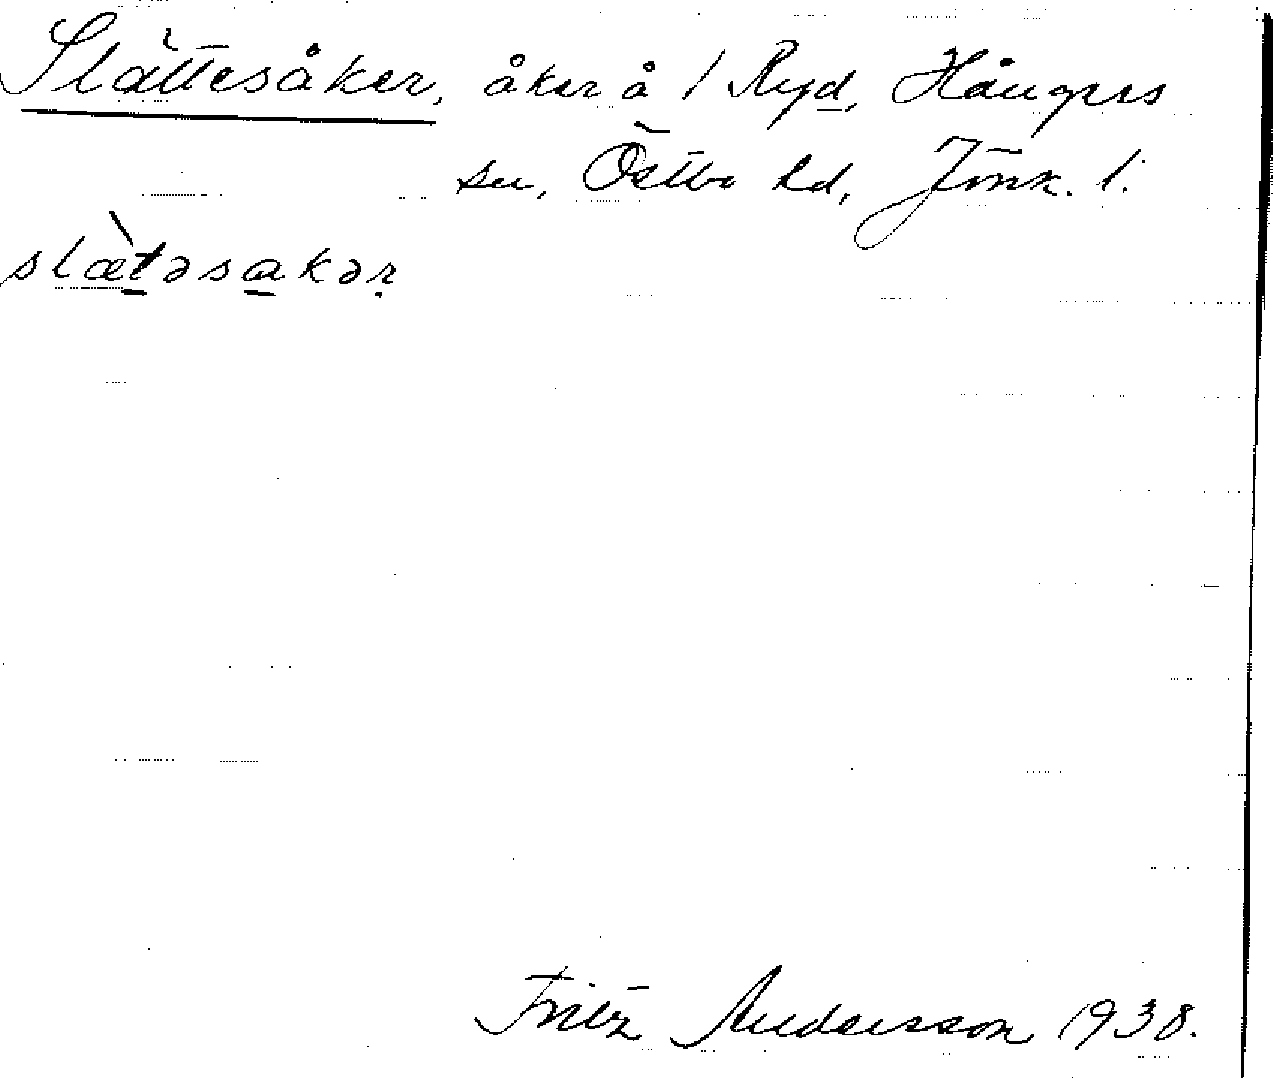 Slättesåker, åker å 1 Ryd, Hångers
sn, Östbo hd, Jönk. l.
slæ̀təsakər
Fritz Andersson 1938.